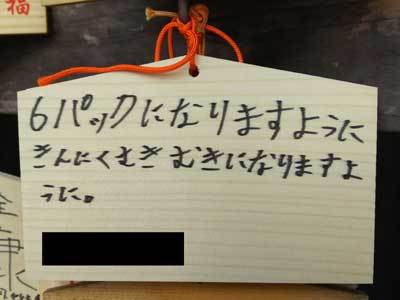 福
6パックになりますように
きんにくむきむきになりますよ
うに。